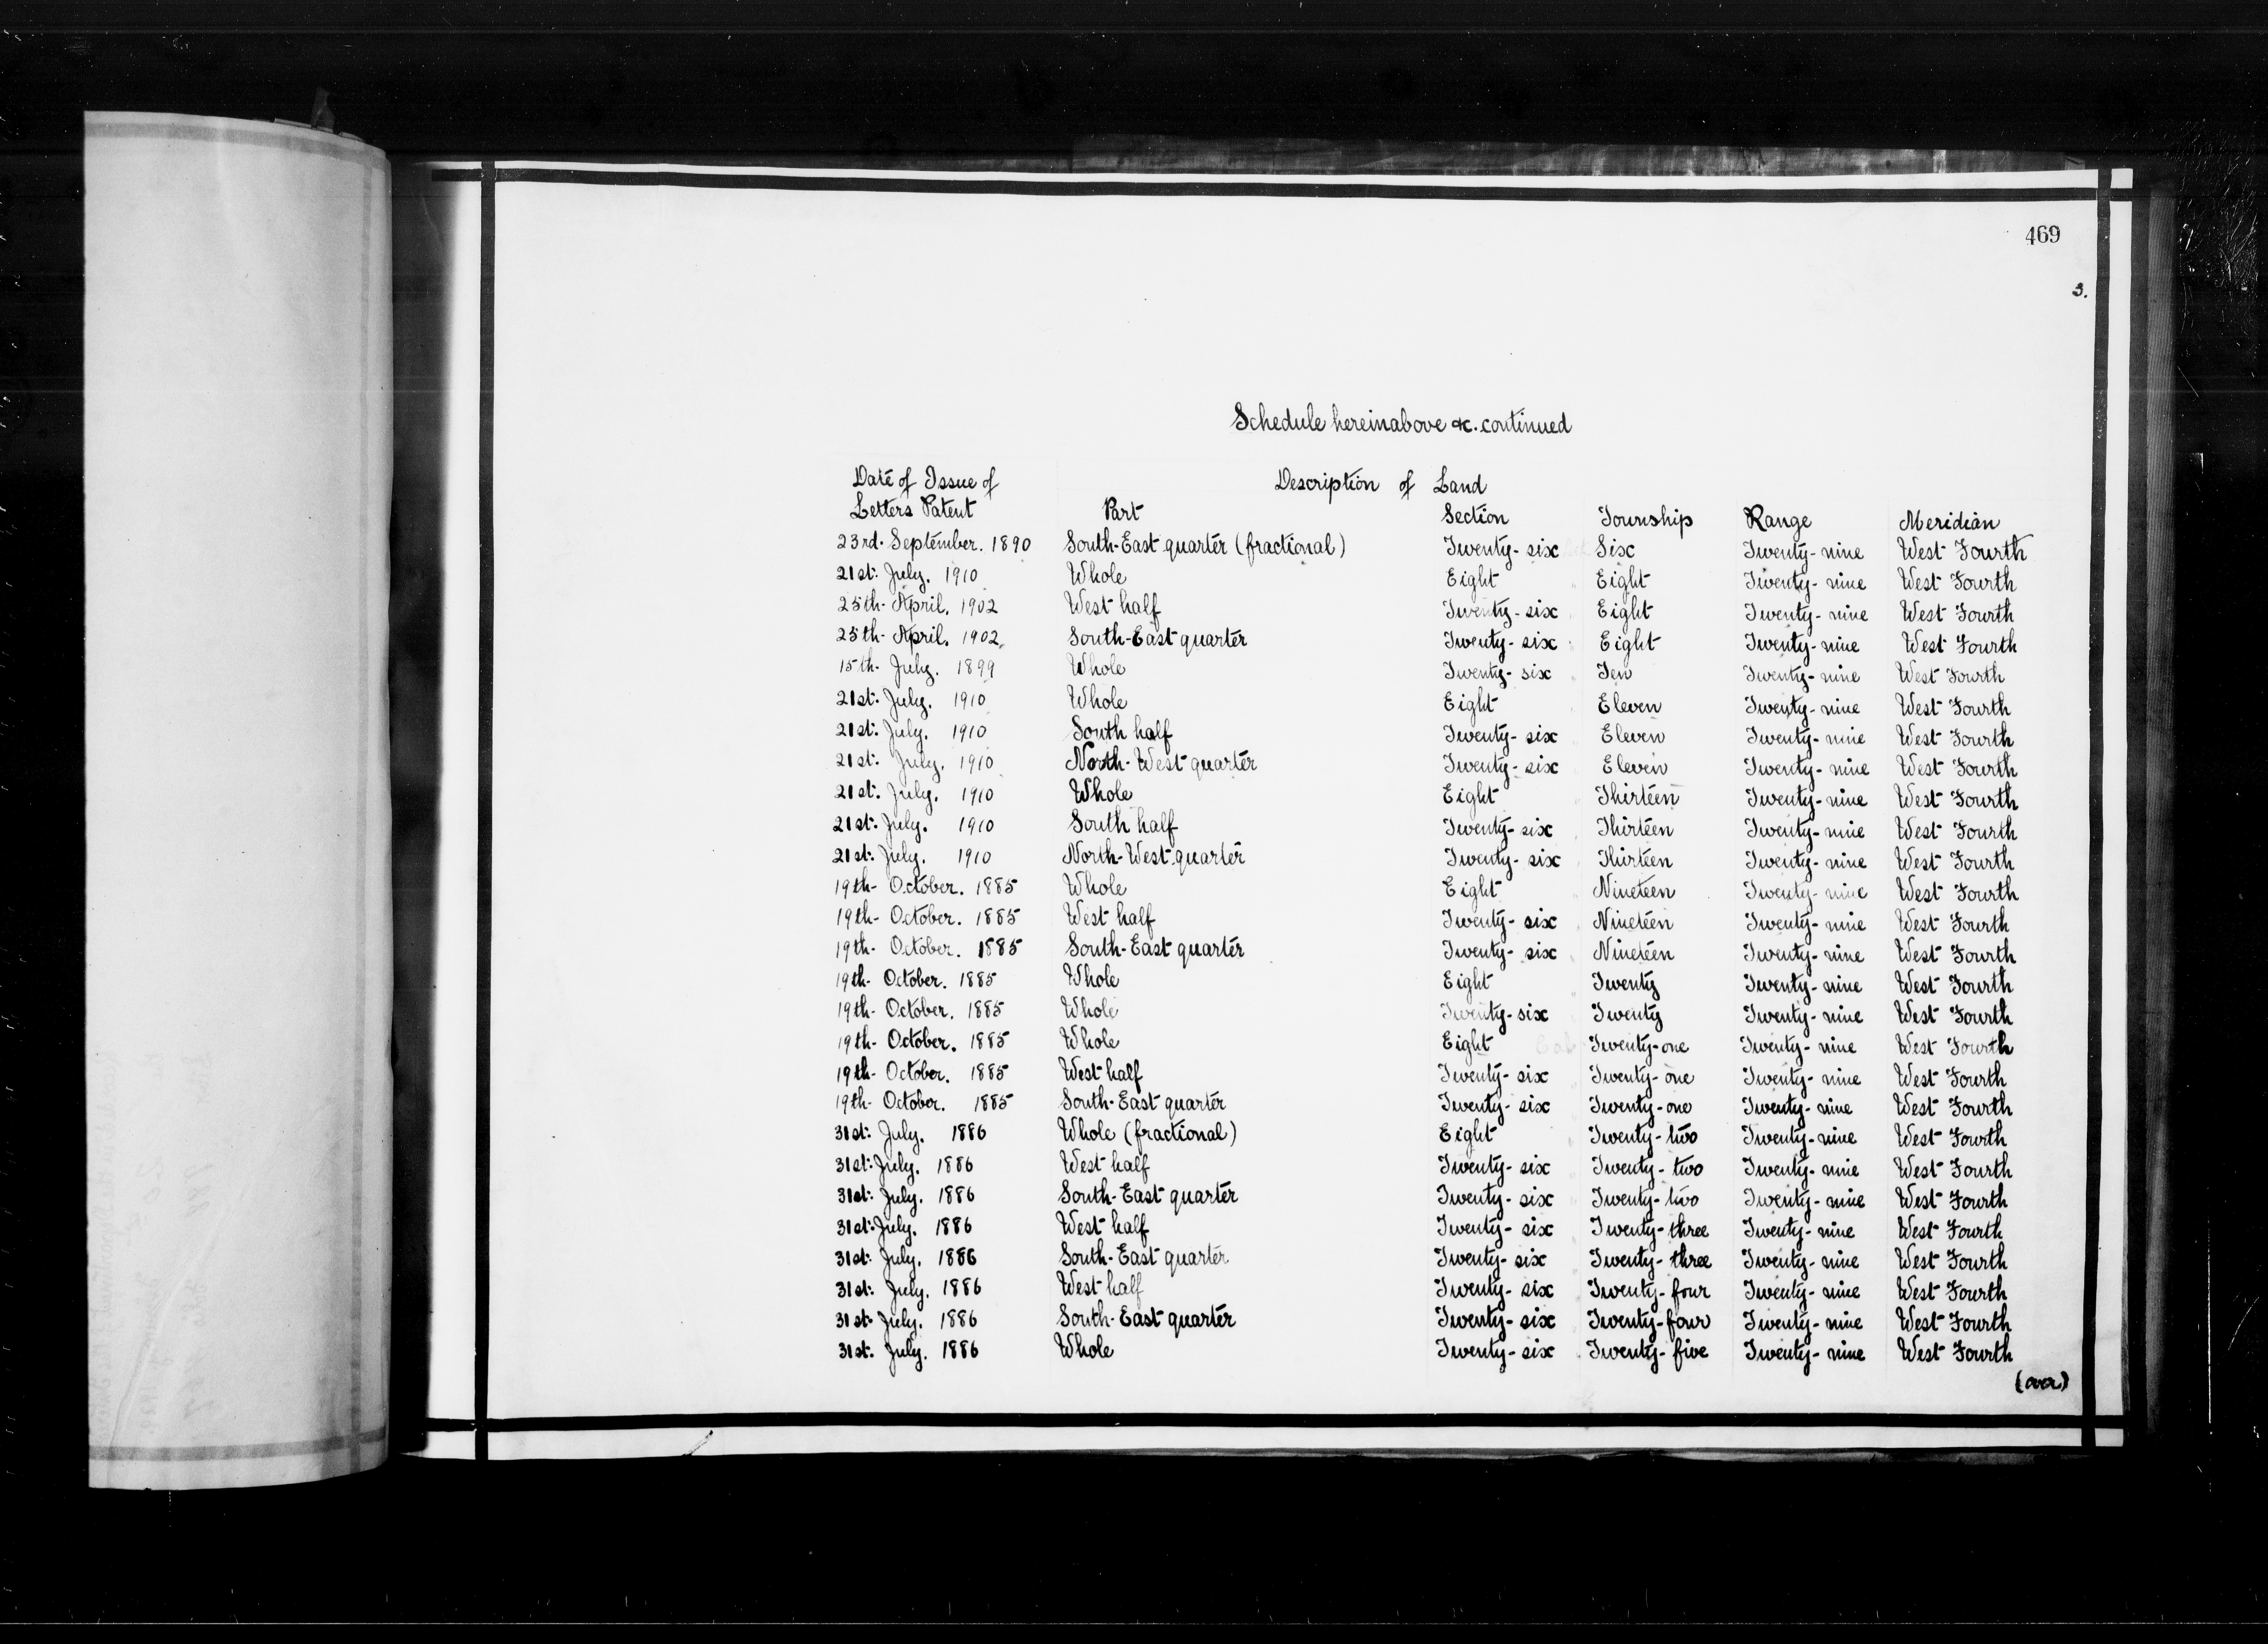 469
3.
Schedule hereinabove &c. continued
Date of Issue of Description of Land
Letters Patent Part Section Township Range Meridian
23rd. September. 1890 South-East quarter (fractional) Twenty-six Six Twenty-nine West Fourth
21st. July. 1910 Whole Eight Eight Twenty-nine West Fourth
25th. April. 1902 West half Twenty-six Eight Twenty-nine West Fourth
25th. April. 1902. South-East quarter Twenty-six Eight Twenty-nine West Fourth
15th. July. 1899 Whole Twenty-six Ten Twenty-nine West Fourth
21st. July. 1910 Whole Eight Eleven Twenty-nine West Fourth
21st. July. 1910 South half Twenty-six Eleven Twenty-nine West Fourth
21st. July. 1910 North-West quarter Twenty-six Eleven Twenty-nine West Fourth
21st. July. 1910 Whole Eight Thirteen Twenty-nine West Fourth
21st. July. 1910 South half Twenty-six Thirteen Twenty-nine West Fourth
21st. July. 1910 North-West quarter Twenty-six Thirteen Twenty-nine West Fourth
19th- October. 1885 Whole Eight Nineteen Twenty-nine West Fourth
19th- October. 1885 West half Twenty-six Nineteen Twenty-nine West Fourth
19th- October. 1885 South-East quarter Twenty-six Nineteen Twenty-nine West Fourth
19th- October. 1885 Whole Eight Twenty Twenty-nine West Fourth
19th- October. 1885 Whole Twenty-six Twenty Twenty-nine West Fourth
19th- October. 1885 Whole Eight Twenty-one Twenty-nine West Fourth
19th- October. 1885 West half Twenty-six Twenty-one Twenty-nine West Fourth
19th- October. 1885 South-East quarter Twenty-six Twenty-one Twenty-nine West Fourth
31st. July. 1886 Whole (fractional) Eight Twenty-two Twenty-nine West Fourth
31st. July. 1886 West half Twenty-six Twenty-two Twenty-nine West Fourth
31st. July. 1886 South-East quarter Twenty-six Twenty-two Twenty-nine West Fourth
31st. July. 1886 West half Twenty-six Twenty-three Twenty-nine West Fourth
31st. July. 1886 South-East quarter Twenty-six Twenty-three Twenty-nine West Fourth
31st. July. 1886 West half Twenty-six Twenty-four Twenty-nine West Fourth
31st. July. 1886 South-East quarter Twenty-six Twenty-four Twenty-nine West Fourth
31st. July. 1886 Whole Twenty-six Twenty-five Twenty-nine West Fourth
(over)